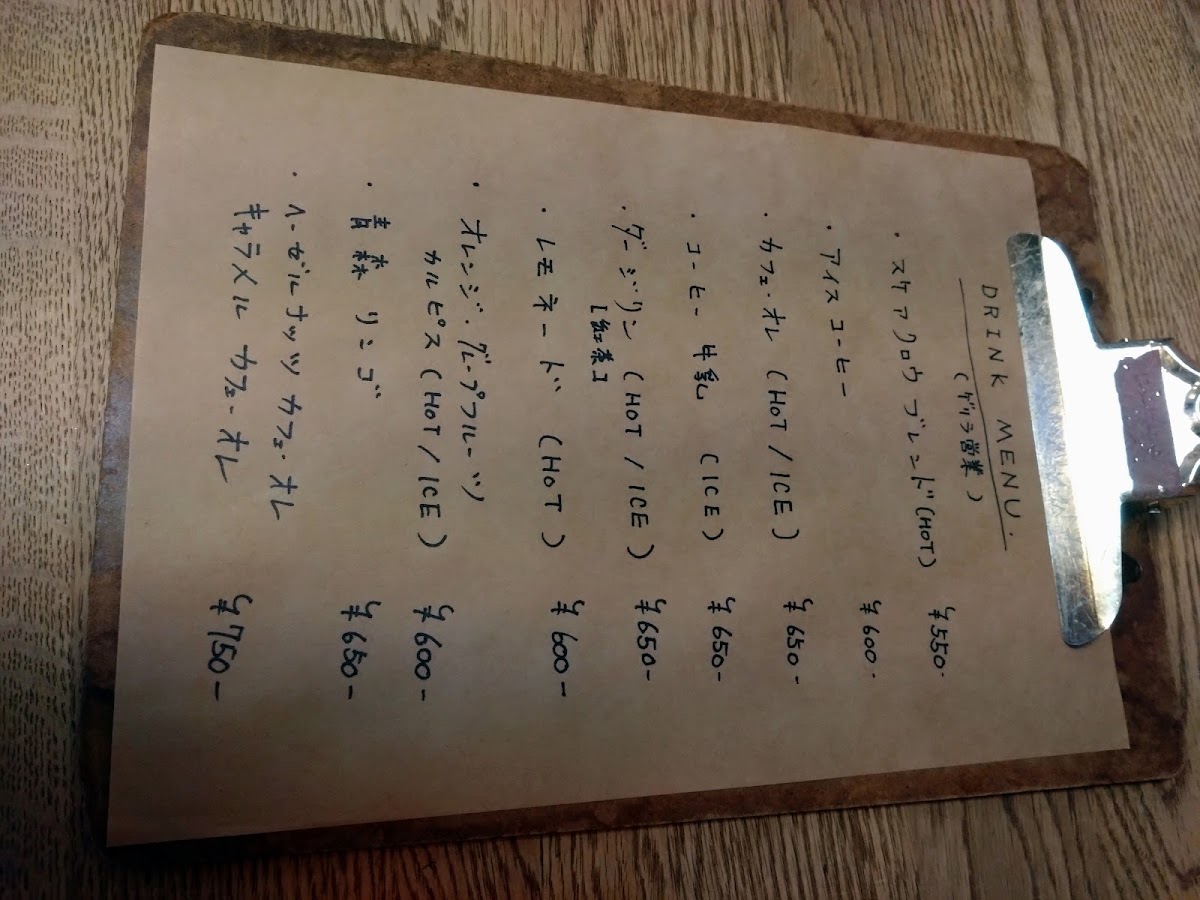 DRINK MENU.
(ゲリラ営業)
・スケアクロウブレンド(HOT) ¥550-
・アイスコーヒー ¥600-
・カフェ・オレ (HOT/ICE) ¥650-
・コーヒー牛乳 (ICE) ¥650-
・ダージリン (HOT/ICE) ¥650-
[紅茶]
・レモネード (HOT) ¥600-
・オレンジ・グレープフルーツ
カルピス (HOT/ICE) ¥600-
・青森リンゴ ¥650-
・ヘーゼルナッツ カフェ・オレ
キャラメル カフェ・オレ ¥750-